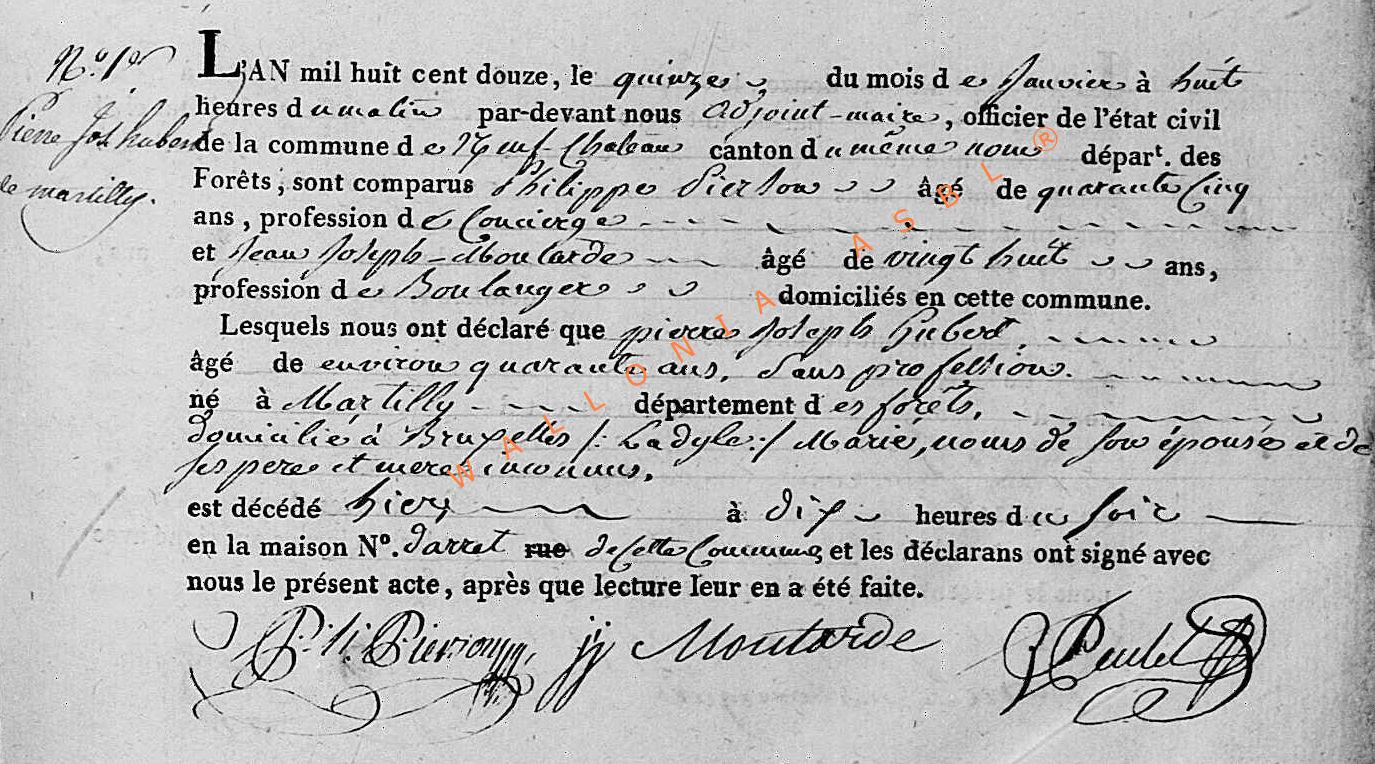 N.º 1er
Pierre Jos hubert
de martilly.
L'AN mil huit cent douze, le quinze du mois de Janvier à huit
heures du matin par-devant nous adjoint-maire, officier de l'état civil
de la commune de Neuf-Chateau canton du même nom départ. des
Forêts, sont comparus Philippe Pierson âgé de quarante Cinq
ans, profession de Concierge
et Jean Joseph-Moutarde âgé de vingt huit ans,
profession de Boulanger domiciliés en cette commune.
Lesquels nous ont déclaré que pierre Joseph hubert,
âgé de environ quarante ans, Sans profession.
né à Martilly département des forêts,
domicilié à Bruxelles /: La dyle :/ Marié, noms de son épouse et de
ses pere et mere inconnus,
est décédé hier, à dix heures du soir
en la maison Nº. d'arret rue de cette Commune et les déclarans ont signé avec
nous le présent acte, après que lecture leur en a été faite.
Ph. Pierson jj Moutarde
WALLONIA ASBL ®